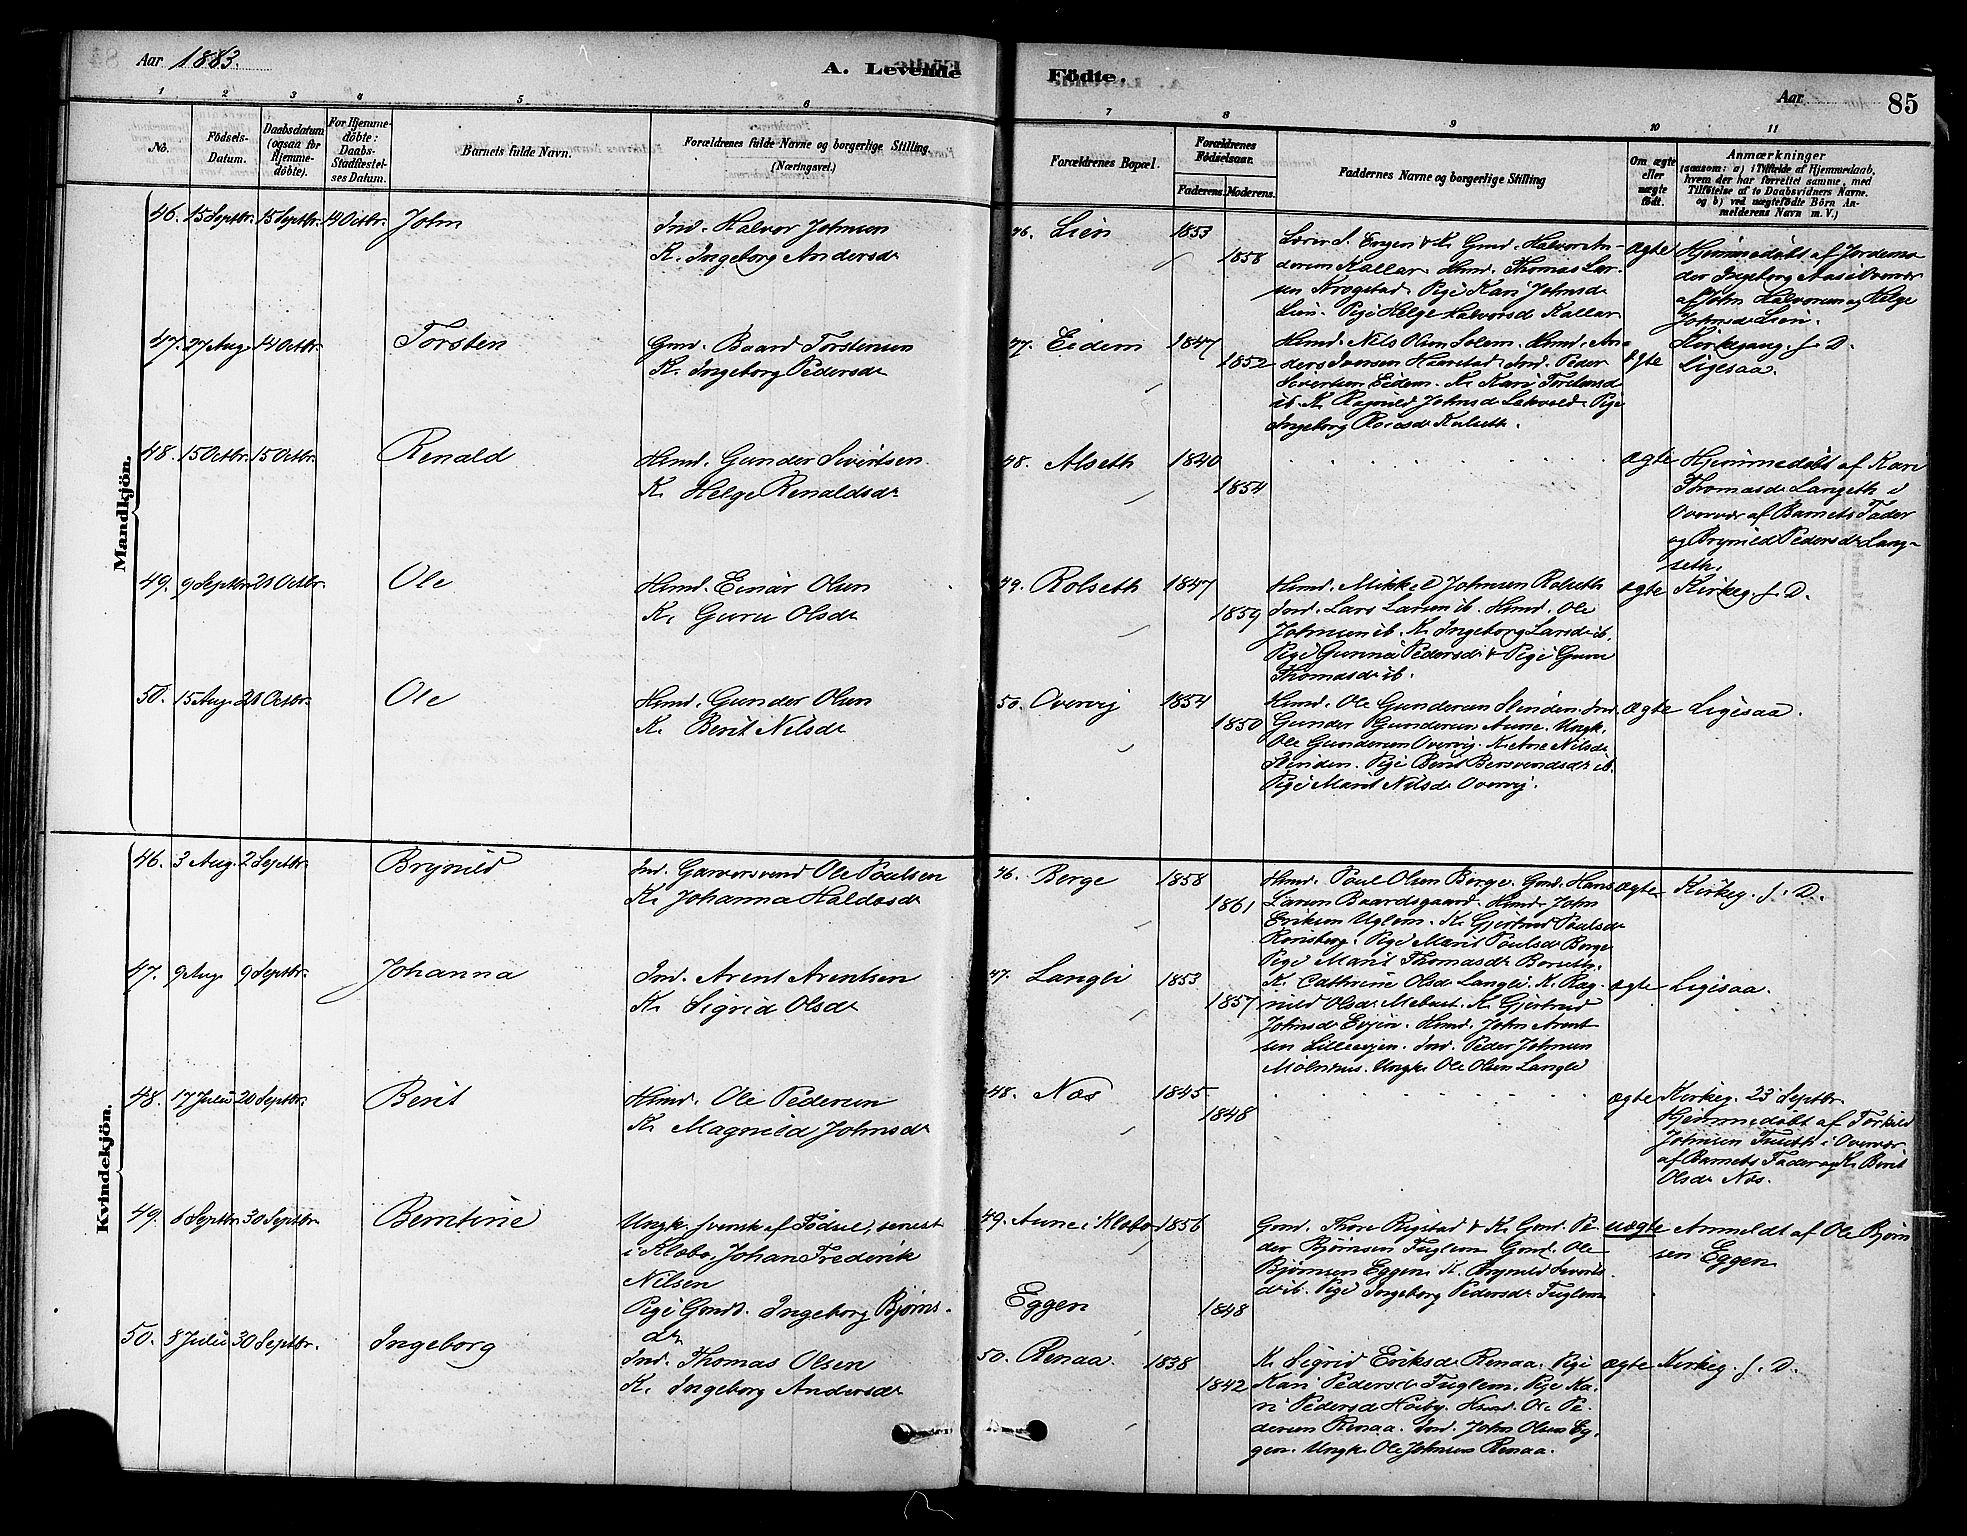 Aar 1883.
A. Levende
Födte.
Aar
85
1
2
3
4
5
6
7
8
9
10
11
No.
Födsels-
Datum.
Daabsdatum
(ogsaa for
Hjemme-
döbte).
For Hjemme-
döbte:
Daabs-
Stadfæstel-
ses Datum.
Barnets fulde Navn.
Forældrenes fulde Navne og borgerlige Stilling
(Næringsvei.)
Forældrenes Bopæl.
Forældrenes
Födselsaar.
Faderens.
Moderens.
Faddernes Navne og borgerlige Stilling
Om ægte
eller
uægte
født.
Anmærkninger
(saasom: a) i Tilfælde af Hjemmedaab,
hvem der har forrettet samme, med
Tilföielse af to Daabsvidners Navne.
og b) ved uægtefödte Börn An-
melderens Navn m. V.)
Mandkjön.
46. 15 Septbr. 15 Septbr. 14 Octbr. John
Ind. Halvor Johnsen
K. Ingeborg Andersdr
46. Lien 1853
1858
Lærer S. Engen & K. Gmd. Halvor An-
dersen Kallar. Hmd. Thomas Lar-
sen Krogstad. Pige Kari Johnsdr
Lien. Pige Helge Halvorsdr Kallar
ægte
Hjemmedöbt af Jordemo-
der Ingeborg Aas i Overvær
af John Halvorsen og Helge
Johnsdr Lien.
47. 27 Aug. 14 Octbr. Torsten
Gmd. Baard Torstensen
K. Ingeborg Pedersdr
47. Eidem 1847
1852
Hmd. Nils Olsen Solem. Hmd. An-
ders Iversen Haarstad. Ind. Peder
Sivertsen Eidem. K. Kari Torstensdr
ib. K. Ragnild Johnsdr Pige
Ingeborg Kulseth.
ægte
Kirkegang. f. D.
Ligesaa.
48. 15 Octbr. 15 Octbr. Renald
Hmd. Gunder Sivertsen
K. Helge Renaldsdr
48. Alseth 1840
1854
ægte
Hjemmedöbt af Kari
Thomasdr Langseth i
Overvær af Barnets Fader
og Brynild Pedersdr Lang-
seth.
49. 9 Septbr. 21 Octbr. Ole
Hmd. Einar Olsen
K. Guru Olsdr
49. Rolseth 1847
1859
Hmd. Mikkel Johnsen Rolseth
Ind. Lars Larsen ib. Hmd. Ole
Johnsen ib. K. Ingeborg Larsdr ib.
Pige Gunnei Pedersdr & Pige Guru
Thomasdr ib.
ægte
Kirkeg. f. D.
50. 15 Aug. 21 Octbr. Ole
Hmd. Gunder Olsen
K. Berit Nilsdr
50. Overvig 1854
1850
Hmd. Ole Gundersen Slinden. Ind.
Gunder Gundersen Aune. Ungk.
Ole Gundersen Overvig. K. Ane Nilsdr
Slinden. Pige Berit Bersvendsdr ib.
Pige Marit Nilsdr Overvig.
ægte
Ligesaa.
Kvindekjön.
46. 3 Aug. 2 Septbr. Brynild
Ind. Garversvend Ole Paulsen
K. Johanna Haldosdr
46. Berge 1858
1861
Hmd. Paul Olsen Berge. Gmd. Hans
Larsen Baardsgaard. Hmd. John
Eriksen Uglem. K. Gjertrud Paulsdr
Rensberg. Pige Marit Paulsdr Berge
Pige Marit Thomasdr
ægte
Kirkeg. f. D.
47. 9 Aug. 9 Septbr. Johanna
Ind. Arent Arentsen
K. Sigrid Olsdr
47. Langli 1853
1857
K. Cathrine Olsdr Langli. K. Rag-
nild Olsdr Mebust. K. Gjertrud
Johnsdr Evjen. Hmd. John Arent-
sen Lilleevjen. Ind. Peder Johnsen
Mölnhus. Ungk. Ole Olsen Langli
ægte
Ligesaa.
48. 17 Juli 20 Septbr. Berit
Hmd. Ole Pedersen
K. Magnild Johnsdr
48. Næs 1845
1848
ægte
Kirkeg. 23 Septbr.
Hjemmedöbt af Torkild
Johnsen i Overvær
af Barnets Fader og K. Berit
Olsdr Næs.
49. 6 Septbr. 30 Septbr. Berntine
Ungk. svensk af Födsel, senest
i Klæbo, Johan Frederik
Nilsen
Pige Gmdt. Ingeborg Björns-
dr
49. Aune i Klæbo 1856
Eggen
1848
Gmd. Thore Rigstad & K. Gmd. Pe-
der Bjørnsen Fuglem. Gmd. Ole
Bjørnsen Eggen. K. Brynild Siverts-
dr ib. Pige Ingeborg Pedersdr Fuglem
uægte
Anmeldt af Ole Bjørn-
sen Eggen
50. 8 Juli 30 Septbr. Ingeborg
Ind. Thomas Olsen
K. Ingeborg Andersdr
50. Renaa. 1838
1842
K. Sigrid Eriksdr Renaa. Pige
Kari Pedersdr Fuglem. Pige Ka-
ri Pedersdr Höiby. Hmd. Ole Pe-
dersen Renaa. Ind. John Olsen Eg-
gen. Ungk. Ole Johnsen Renaa.
ægte
Kirkeg. f. D.